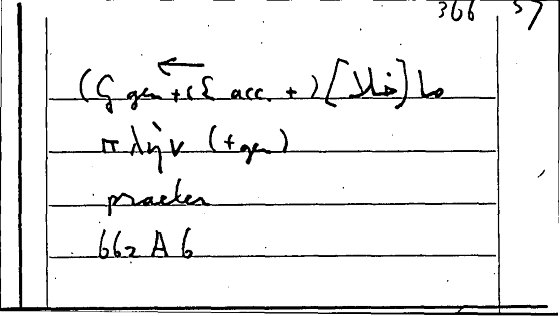 366 57
(ξ gen + (ξ acc. +) [خلا] ما
πλήν (+gen)
praeter
662 A 6